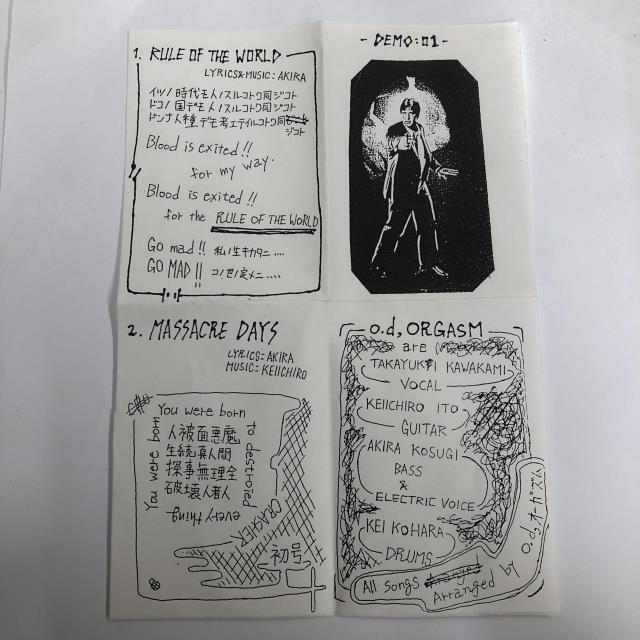 1. RULE OF THE WORLD
LYRICS&MUSIC: AKIRA
イツノ時代モ人ノスルコトワ同ジコト
ドコノ国デモ人ノスルコトワ同ジコト
ドンナ人種デモ考エテイルコトワ同
ジコト
Blood is exited!!
for my way.
Blood is exited!!
for the RULE OF THE WORLD
Go mad!! 私ノ生キカタニ....
GO MAD!! コノ世ノ定メニ....
- DEMO:01 -
2. MASSACRE DAYS
LYRICS= AKIRA
MUSIC: KEIICHIRO
You were born
You were born
to destroied
every thing
人被面悪魔
生続真人間
探事無理全
破壊人者人
CRASHER
初号
o.d, ORGASM
are
TAKAYUKI KAWAKAMI
VOCAL
KEIICHIRO ITO
GUITAR
AKIRA KOSUGI
BASS
&
ELECTRIC VOICE
KEI KOHARA
DRUMS
All songs Arranged by o.d,オーガズム